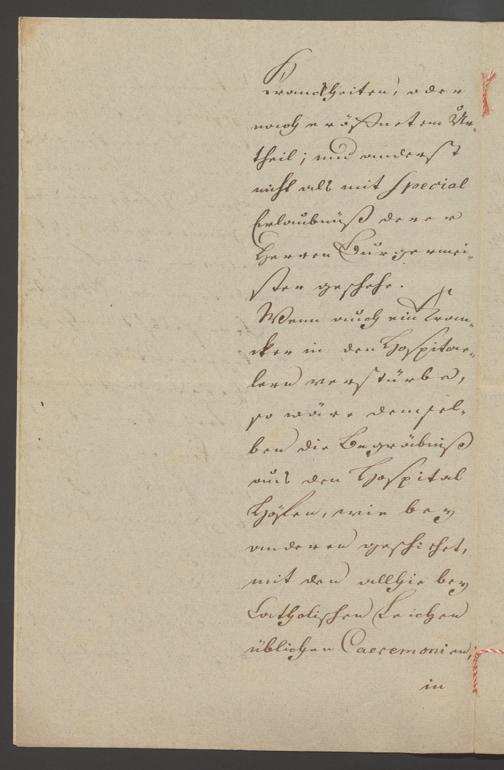 Kranckheiten, oder
nach eröffnetem Ur-
theil; und anderst
nicht als mit Special
Erlaubnüß derer
Herren Burgermei-
ster geschehe.
Wenn auch ein Kran-
cker in den Hospitae-
lern verstürbe,
so wäre demsel-
ben die Begräbniß
aus den Hospital
Höfen, wie bey
anderen geschiehet,
mit den allhie bey
Catholischen Leichen
üblichen Caeremonien,
in